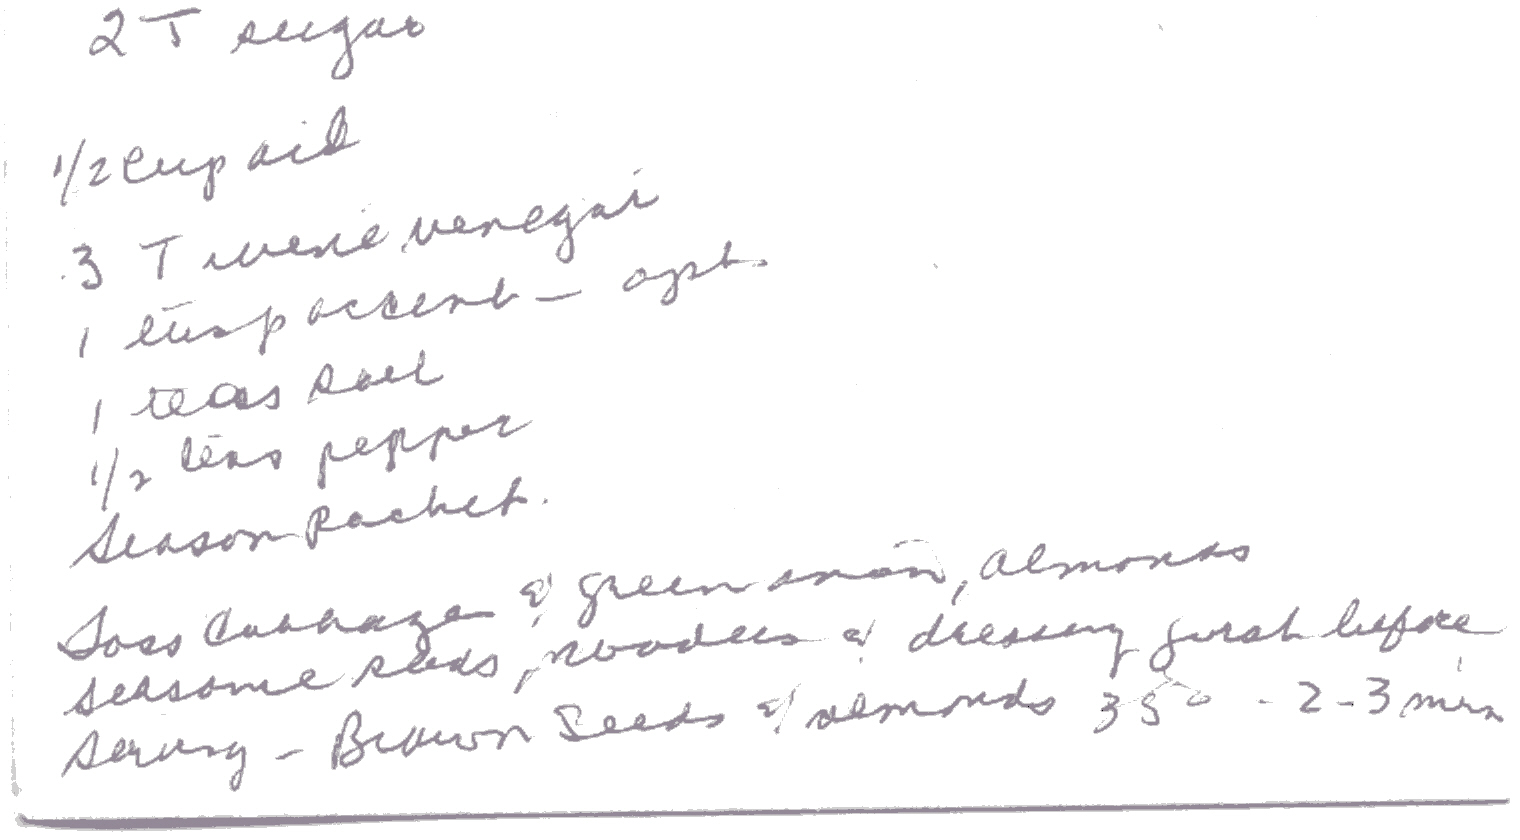 2 T sugar
1/2 cup oil
3 T wine venegar
1 teasp accent - opt.
1 teas salt
1/2 teas pepper
Season Packet.
Toss Cabbage & green onion, almonds
seasome seeds, noodles & dressing just before
serving - Brown Seeds & almonds 350 - 2-3 min